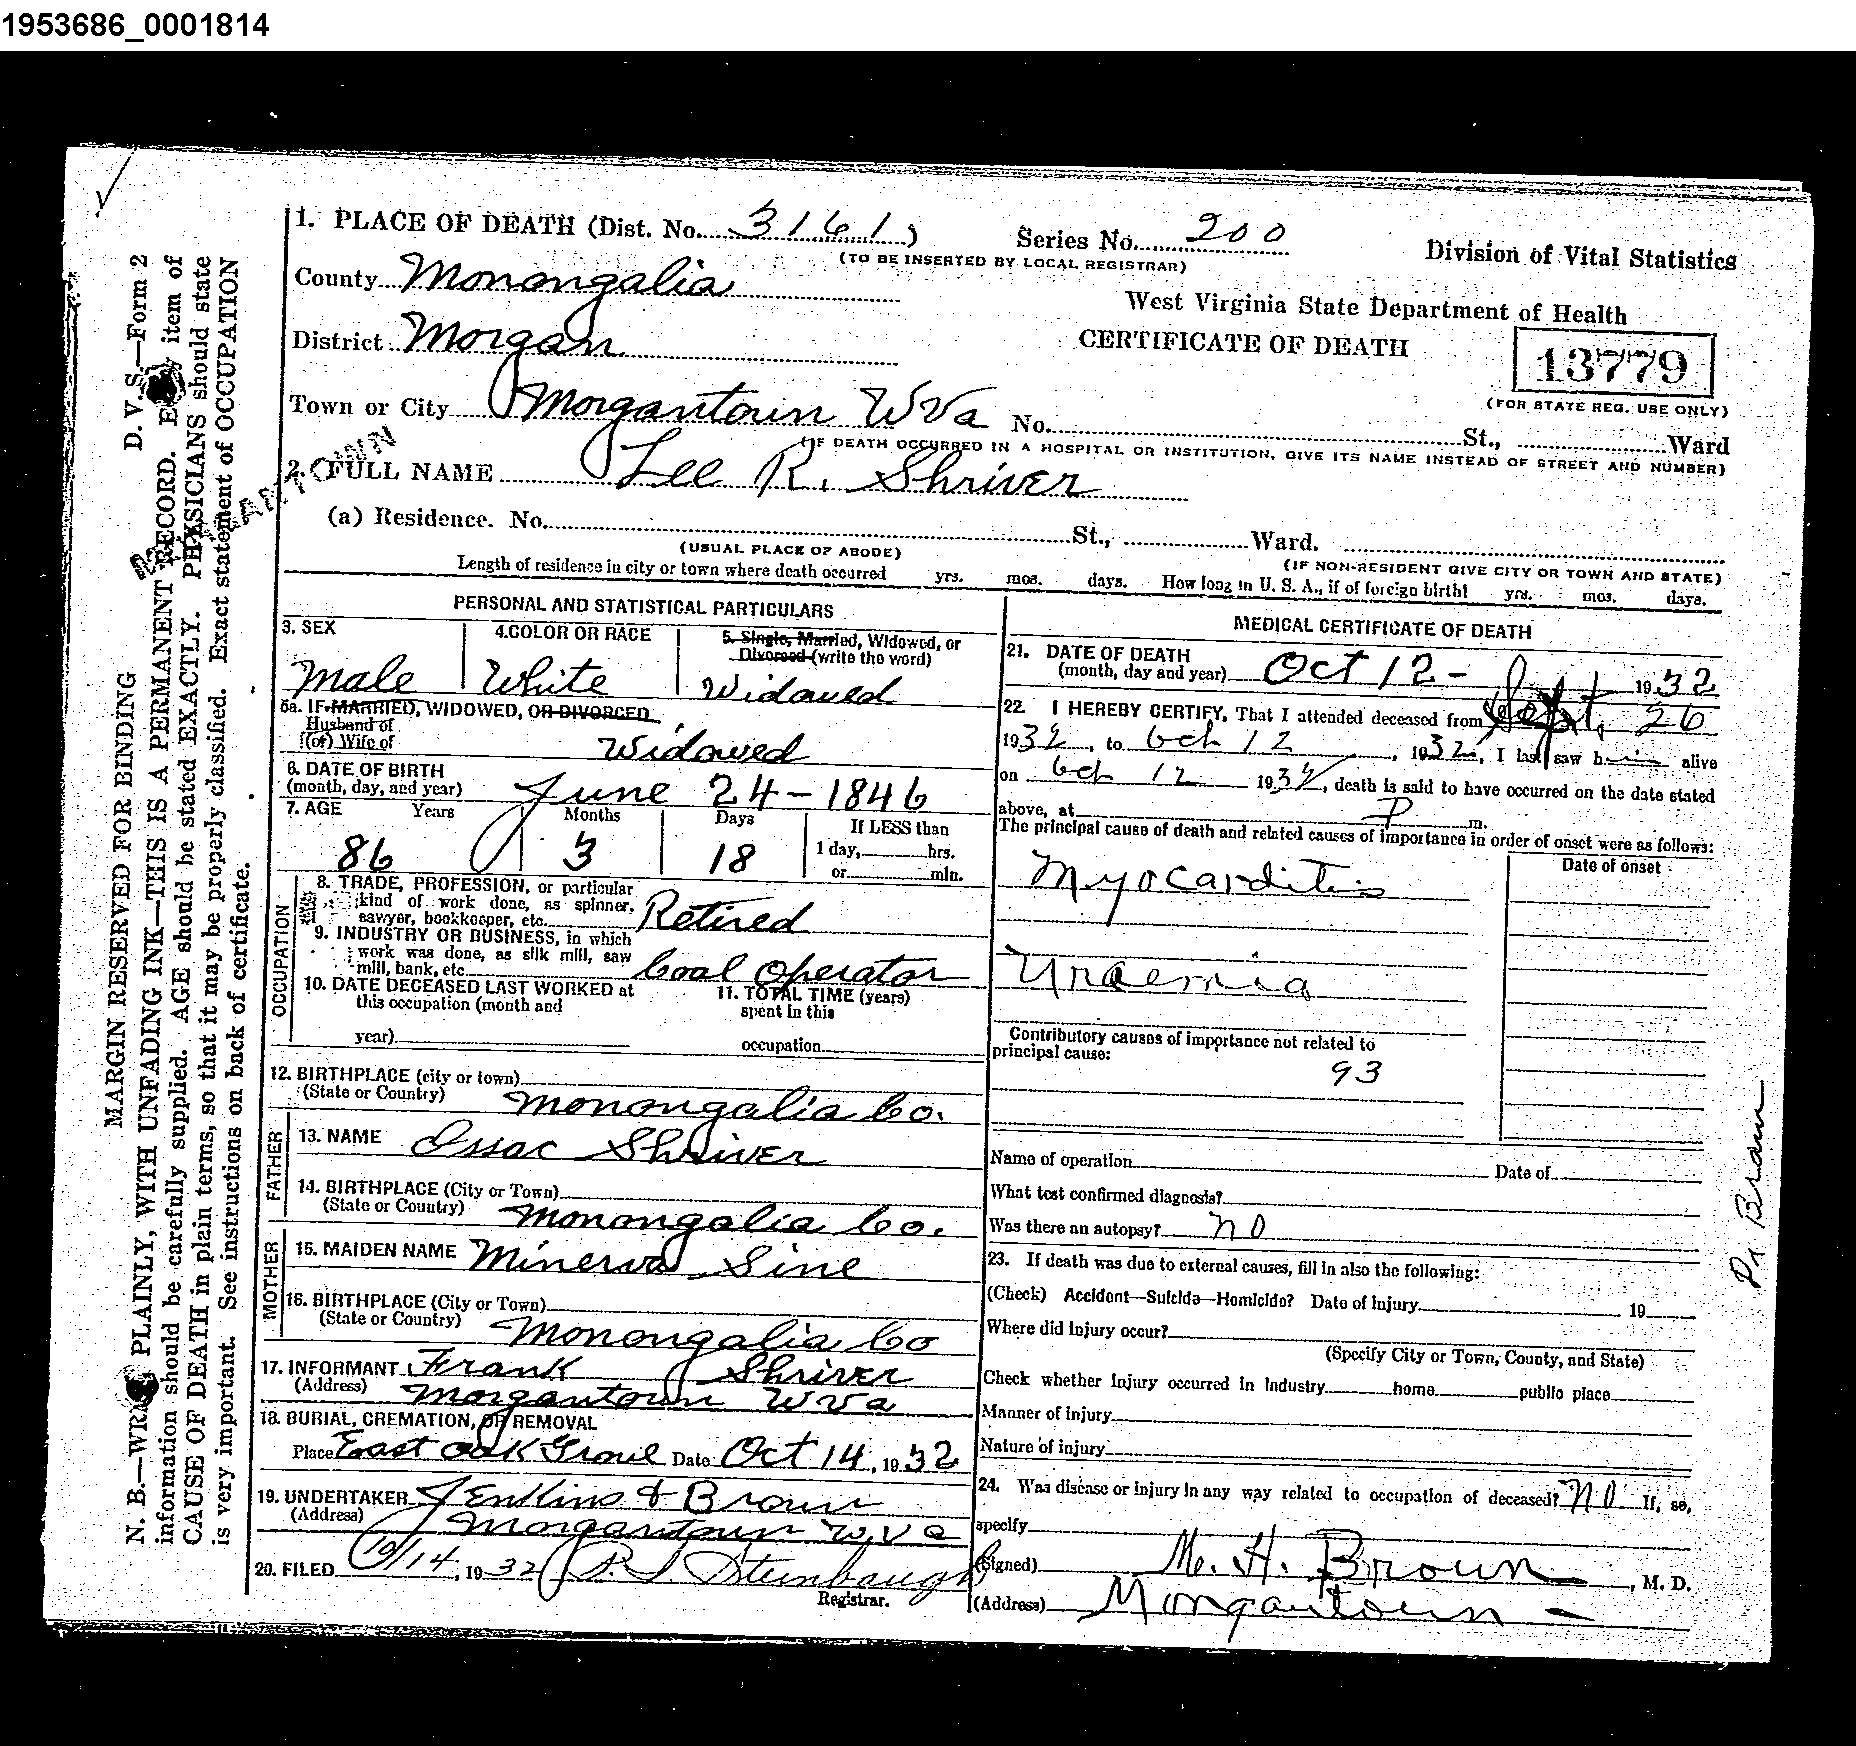 1953686_0001814
1. PLACE OF DEATH (Dist. No. 3161) Series No. 200
(TO BE INSERTED BY LOCAL REGISTRAR)
Division of Vital Statistics
County Monongalia
West Virginia State Department of Health
District Morgan
CERTIFICATE OF DEATH
13779
(FOR STATE REG. USE ONLY)
Town or City Morgantown W Va No. St., Ward
(IF DEATH OCCURRED IN A HOSPITAL OR INSTITUTION, GIVE ITS NAME INSTEAD OF STREET AND NUMBER)
2. FULL NAME Lee R. Shriver
(a) Residence. No. St., Ward.
(USUAL PLACE OF ABODE) (IF NON-RESIDENT GIVE CITY OR TOWN AND STATE)
Length of residence in city or town where death occurred yrs. mos. days. How long in U. S. A., if of foreign birth? yrs. mos. days.
PERSONAL AND STATISTICAL PARTICULARS
3. SEX 4. COLOR OR RACE 5. Single, Married, Widowed, or
Divorced (write the word)
Male White Widowed
5a. IF MARRIED, WIDOWED, OR DIVORCED
Husband of
(or) Wife of Widowed
6. DATE OF BIRTH
(month, day, and year) June 24-1846
7. AGE Years Months Days If LESS than
86 3 18 1 day, hrs.
or min.
OCCUPATION
8. TRADE, PROFESSION, or particular
kind of work done, as spinner,
sawyer, bookkeeper, etc. Retired
9. INDUSTRY OR BUSINESS, in which
work was done, as silk mill, saw
mill, bank, etc. Coal Operator
10. DATE DECEASED LAST WORKED at 11. TOTAL TIME (years)
this occupation (month and spent in this
year) occupation
12. BIRTHPLACE (city or town)
(State or Country) Monongalia Co.
FATHER
13. NAME Issac Shriver
14. BIRTHPLACE (City or Town)
(State or Country) Monongalia Co.
MOTHER
15. MAIDEN NAME Minerva Sine
16. BIRTHPLACE (City or Town)
(State or Country) Monongalia Co
17. INFORMANT Frank Shriver
(Address) Morgantown W Va
18. BURIAL, CREMATION, OR REMOVAL
Place East Oak Grove Date Oct 14, 1932
19. UNDERTAKER Jenkins & Brown
(Address) Morgantown W.Va
20. FILED 10/14, 1932 Steinbaugh
Registrar.
MEDICAL CERTIFICATE OF DEATH
21. DATE OF DEATH
(month, day and year) Oct 12- 1932
22. I HEREBY CERTIFY, That I attended deceased from Sept. 26
1932, to Oct 12, 1932, I last saw him alive
on Oct 12 1932, death is said to have occurred on the date stated
above, at P m.
The principal cause of death and related causes of importance in order of onset were as follows:
Date of onset
Myocarditis
Uraemia
Contributory causes of importance not related to
principal cause:
93
Name of operation Date of
What test confirmed diagnosis?
Was there an autopsy? no
23. If death was due to external causes, fill in also the following:
(Check) Accident—Suicide—Homicide? Date of injury 19
Where did injury occur?
(Specify City or Town, County, and State)
Check whether injury occurred in industry home public place
Manner of injury
Nature of injury
24. Was disease or injury in any way related to occupation of deceased? no If, so,
specify
(Signed) M. H. Brown, M. D.
(Address) Morgantown -
Dr Brown
D. V. S.—Form 2
MARGIN RESERVED FOR BINDING
N. B.—WRITE PLAINLY, WITH UNFADING INK—THIS IS A PERMANENT RECORD. Every item of
information should be carefully supplied. AGE should be stated EXACTLY. PHYSICIANS should state
CAUSE OF DEATH in plain terms, so that it may be properly classified. Exact statement of OCCUPATION
is very important. See instructions on back of certificate.